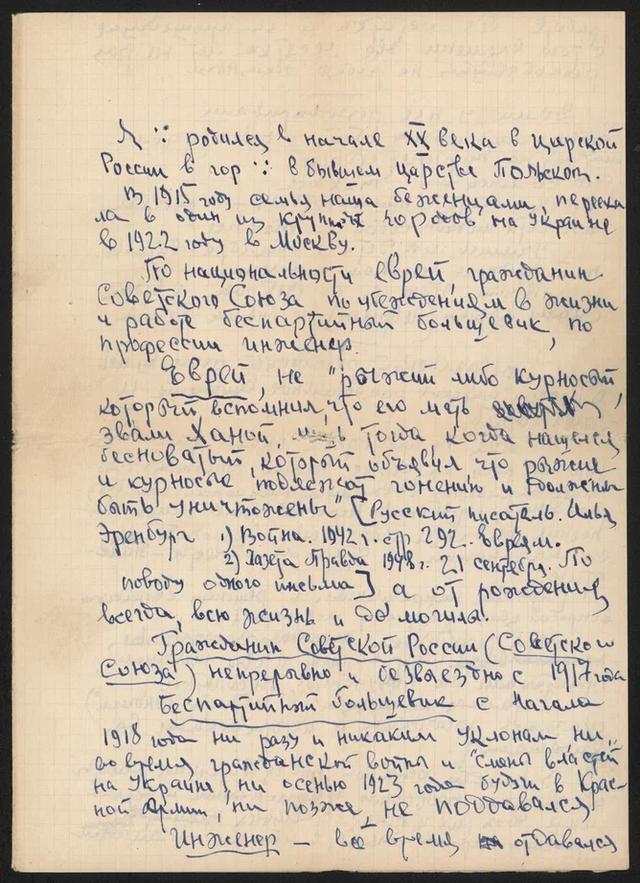 Я ∵ родился в начале XX века в царской
России в гор ∵ в бывшем царстве Польском.
В 1915 году семья наша беженцами, перееха
ла в один из крупных городов на Украине
в 1922 году в Москву.
По национальности еврей, гражданин
Советского Союза по убеждениям в жизни
и работе беспартийный большевик, по
профессии инженер.
Еврей, не "рыжий либо курносый,
который вспомнил, что его мать
звали Ханой, лишь тогда когда нашелся
бесноватый, который объявил что рыжие
и курносые подлежат гонению и должны
быть уничтожены" [Русский писатель. Илья
Эренбург 1) Война. 1942 г. стр 292. Евреям.
2) Газета Правда 1948 г. 21 сентября. По
поводу одного письма] а от рождения
всегда, всю жизнь и до могилы.
Гражданин Советской России (Советского
Союза) непрерывно и безвыездно с 1917 года
Беспартийный большевик с начала
1918 года ни разу и никаким уклонам ни
во время гражданской войны и "смены властей"
на Украине, ни осенью 1923 года будучи в Крас-
ной Армии, ни позже, не поддавался
Инженер – всё время отдавался